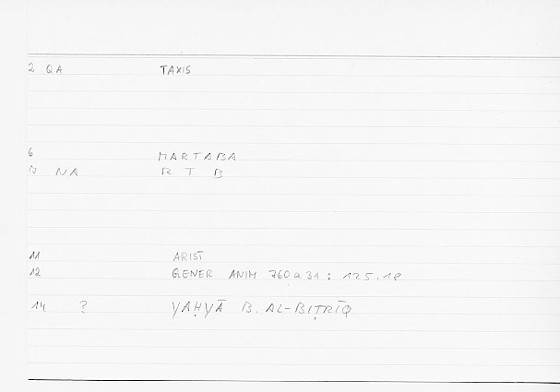 2 QA TAXIS
6 MARTABA
NA R T B
11 ARIST
12 GENER ANIM 760a31: 125.18
14 ? YAḤYĀ B. AL-BIṬRĪQ